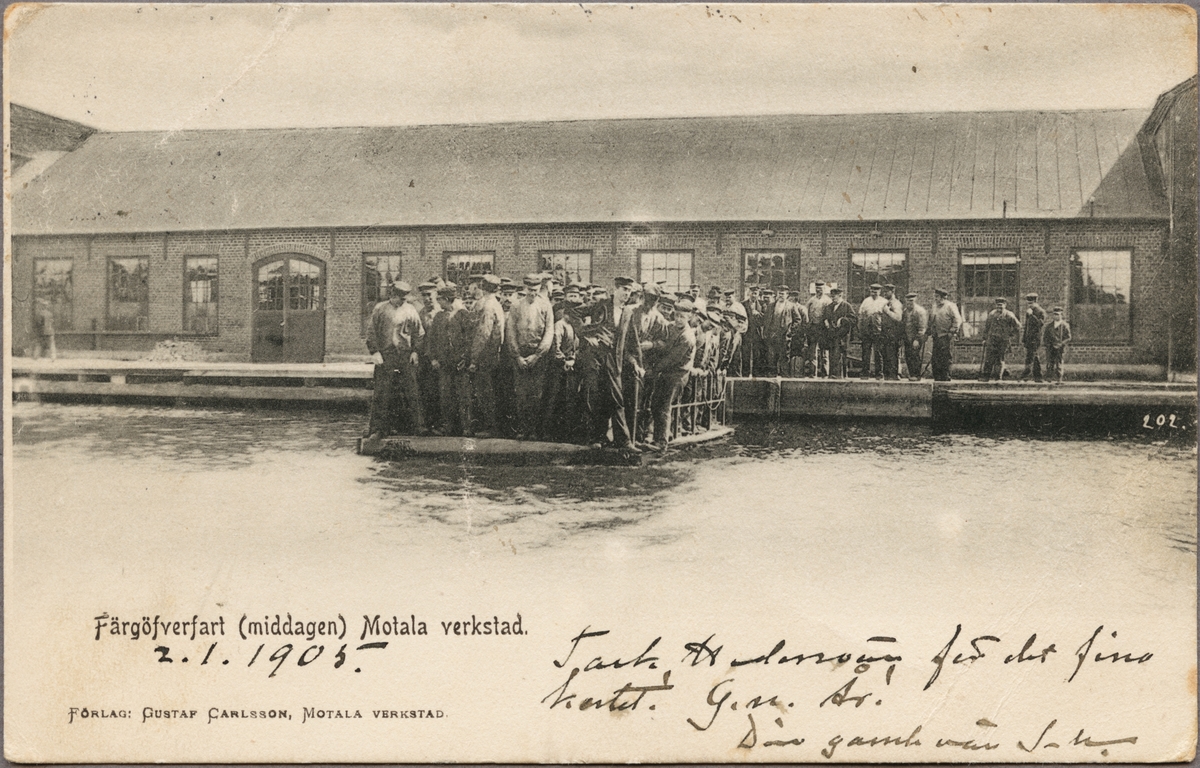 202.
Färgöfverfart (middagen) Motala verkstad.
2.1.1905.
Tack för det fina
kortet! G. n. År!
Din gamle vän
FÖRLAG: GUSTAF CARLSSON, MOTALA VERKSTAD.